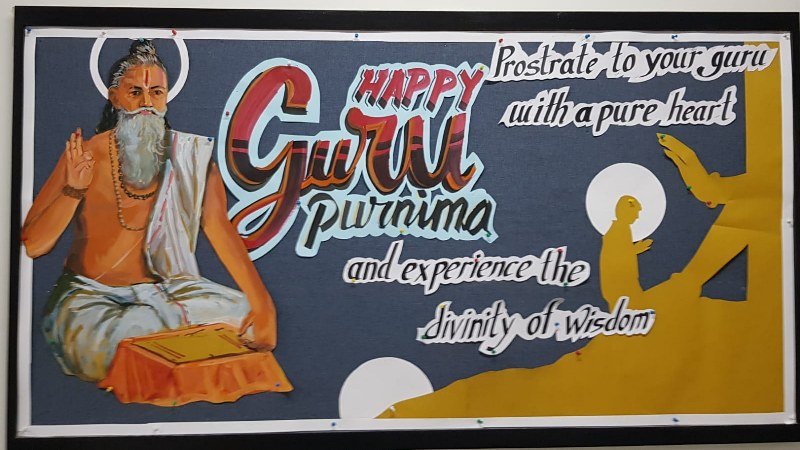 HAPPY
Guru
purnima
Prostrate to your guru
with a pure heart
and experience the
divinity of wisdom